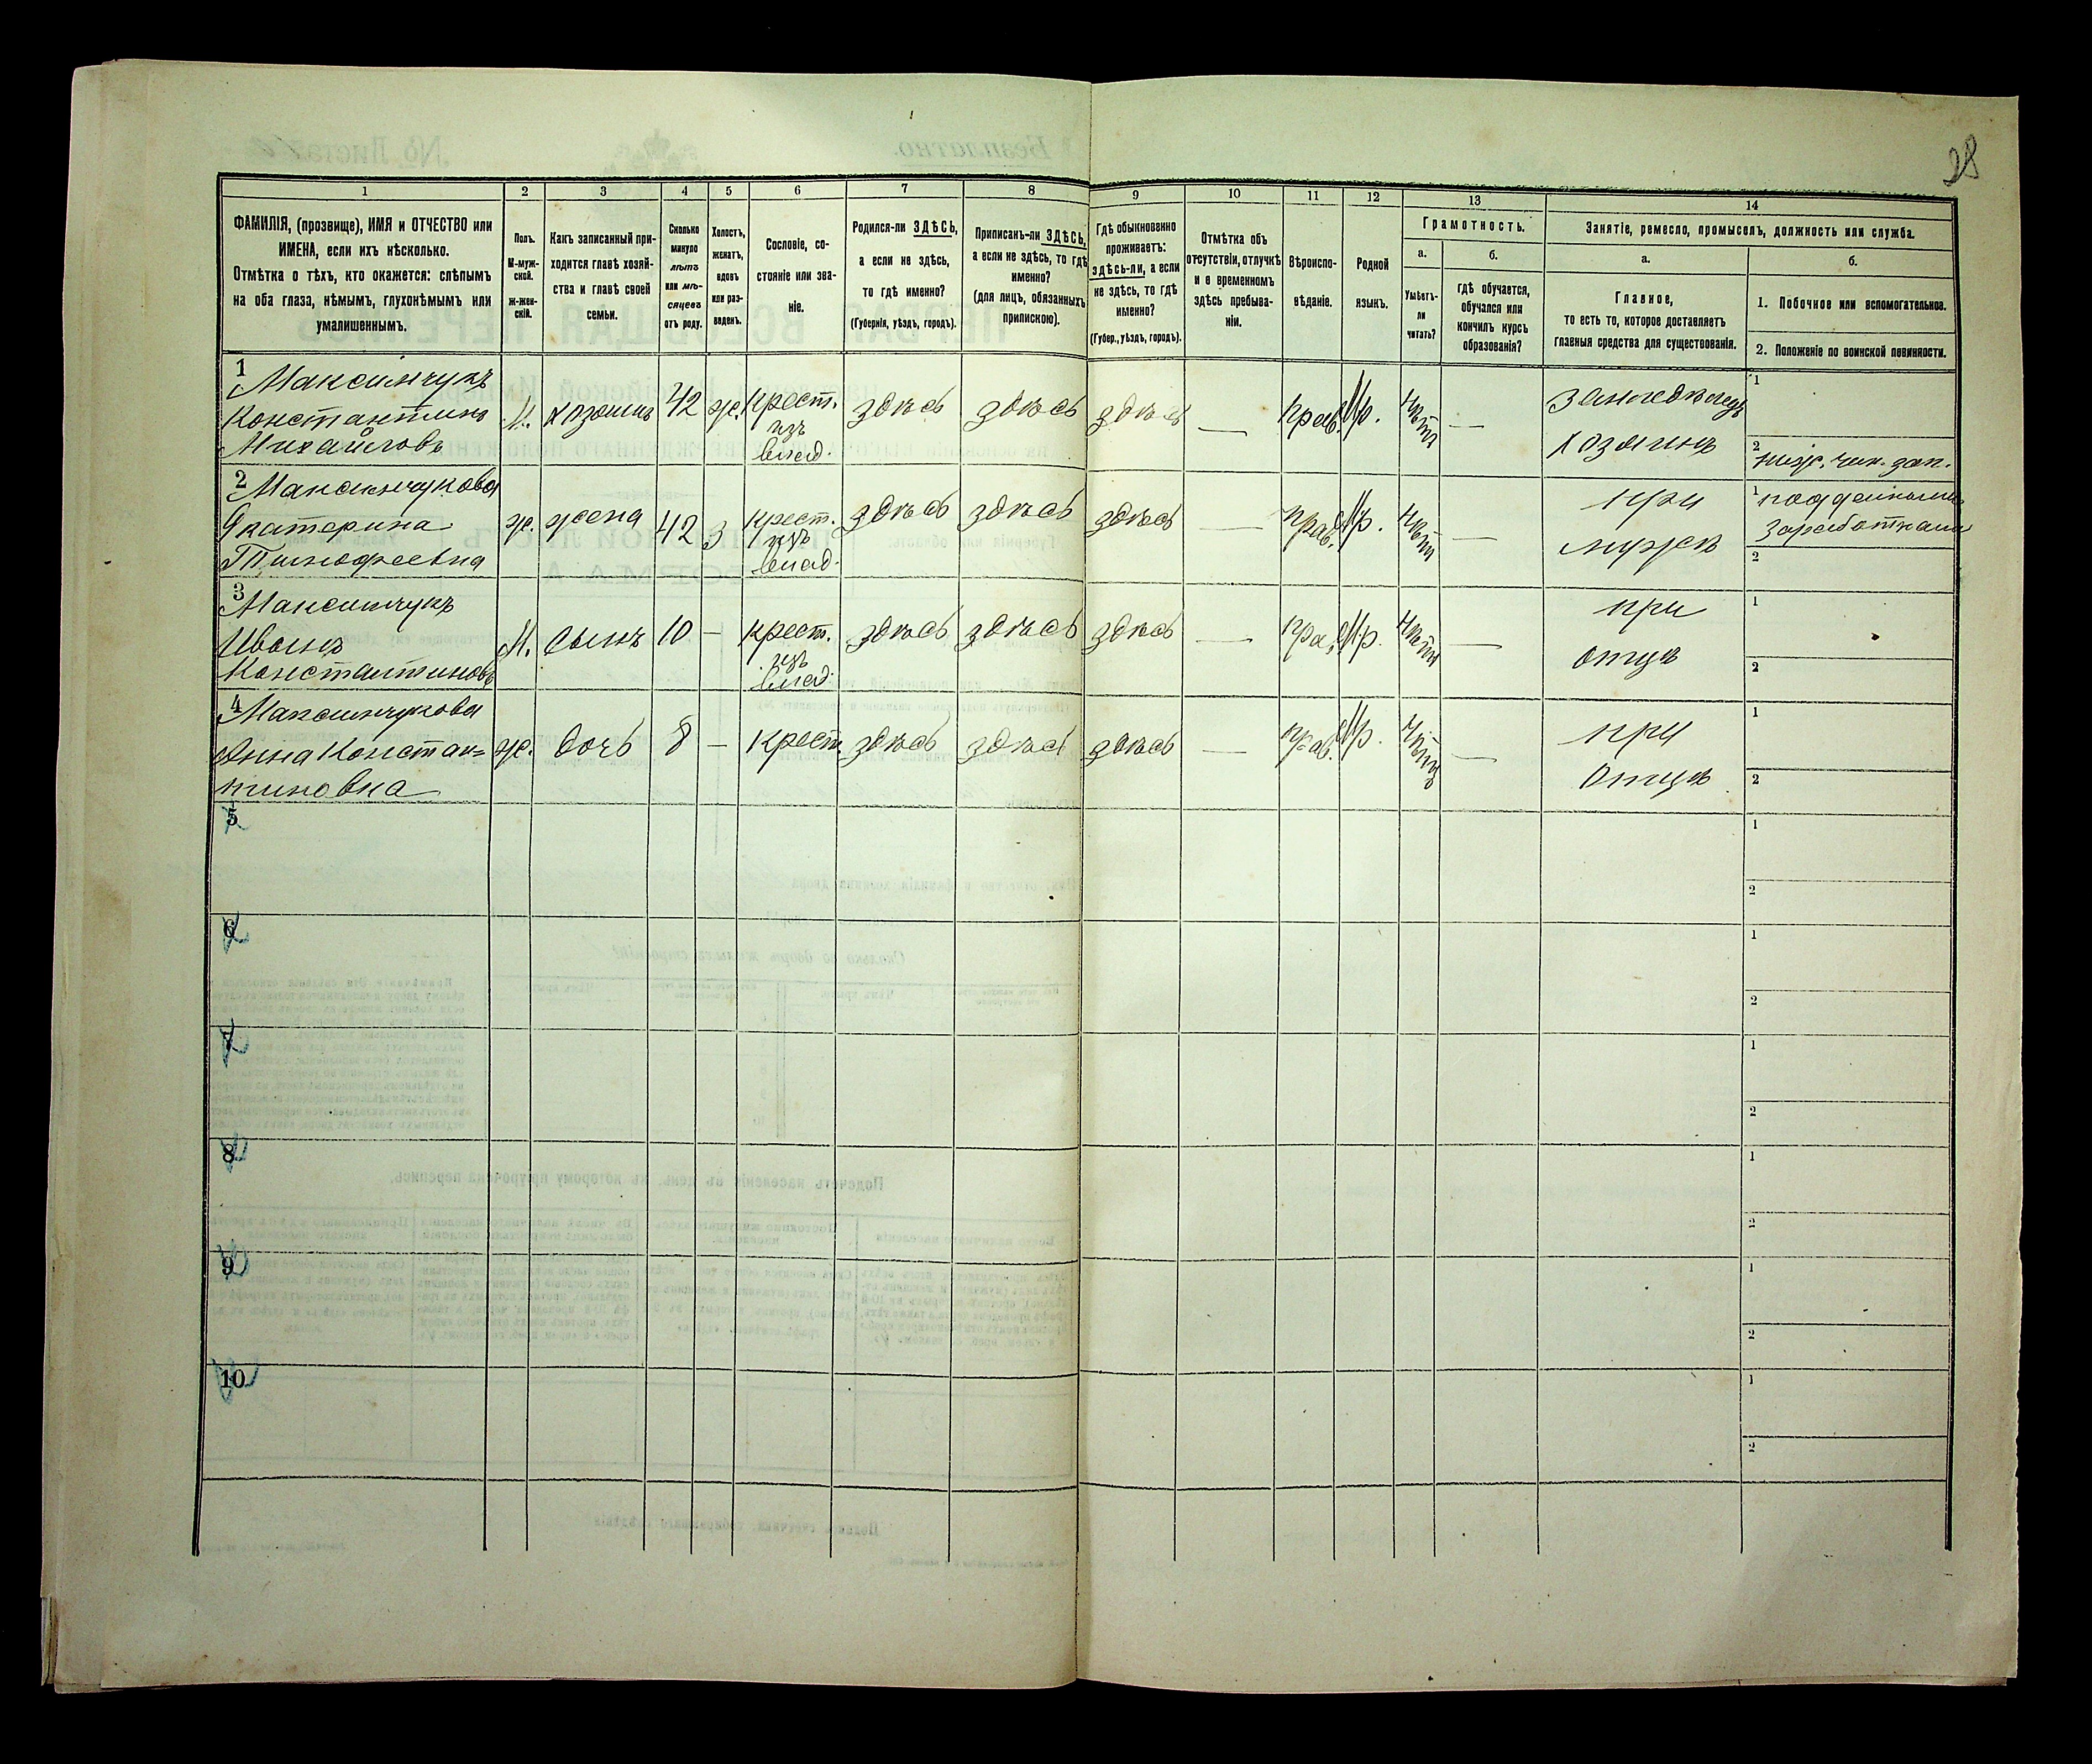 28
1 2 3 4 5 6 7 8 9 10 11 12 13 14
ФАМИЛІЯ, (прозвище), ИМЯ и ОТЧЕСТВО или
ИМЕНА, если ихъ нѣсколько.
Отмѣтка о тѣхъ, кто окажется: слѣпымъ
на оба глаза, нѣмымъ, глухонѣмымъ или
умалишеннымъ.
Полъ.
М-муж-
ской.
Ж-жен-
скій.
Какъ записанный при-
ходится главѣ хозяй-
ства и главѣ своей
семьи.
Сколько
минуло
лѣтъ
или мѣ-
сяцевъ
отъ роду.
Холостъ,
женатъ,
вдовъ
или раз-
веденъ.
Сословіе, со-
стояніе или зва-
ніе.
Родился-ли ЗДѢСЬ,
а если не здѣсь,
то гдѣ именно?
(Губернія, уѣздъ, городъ).
Приписанъ-ли ЗДѢСЬ,
а если не здѣсь, то гдѣ
именно?
(для лицъ, обязанныхъ
припискою).
Гдѣ обыкновенно
проживаетъ:
здѣсь-ли, а если
не здѣсь, то гдѣ
именно?
(Губер., уѣздъ, городъ).
Отмѣтка объ
отсутствіи, отлучкѣ
и о временномъ
здѣсь пребыва-
ніи.
Вѣроиспо-
вѣданіе.
Родной
языкъ.
Грамотность.
а.
Умѣетъ-
ли
читать?
б.
гдѣ обучается,
обучался или
кончилъ курсъ
образованія?
Занятіе, ремесло, промыселъ, должность или служба.
а.
Главное,
то есть то, которое доставляетъ
главныя средства для существованія.
б.
1. Побочное или вспомогательное.
2. Положеніе по воинской повинности.
1
Максимчукъ
Константинъ
Михайловъ
М.
хозяинъ
42
ж.
Крест.
изъ
влад.
здѣсь
здѣсь
здѣсь
—
прав.
Мр.
нѣтъ
—
Земледѣлецъ
хозяинъ
1
2
ниж. чин. зап.
2
Максимчукова
Екатерина
Тимофеевна
ж.
жена
42
З
Крест.
изъ
влад.
здѣсь
здѣсь
здѣсь
—
прав.
Мр.
нѣтъ
—
при
мужѣ
1
поддѣльными
заработками
2
3
Максимчукъ
Иванъ
Константиновъ
М.
сынъ
10
—
Крест.
изъ
влад.
здѣсь
здѣсь
здѣсь
—
прав.
Мр.
нѣтъ
—
при
отцѣ
1
2
4
Максимчукова
Анна Констан=
тиновна
ж.
дочь
8
—
Крест.
здѣсь
здѣсь
здѣсь
—
прав.
Мр.
нѣтъ
—
при
отцѣ
1
2
5
1
2
6
1
2
7
1
2
8
1
2
9
1
2
10
1
2